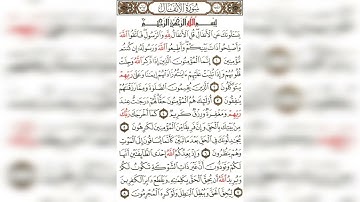 سُورَةُ الأَنفَالِ
بِسْمِ اللَّهِ الرَّحْمَٰنِ الرَّحِيمِ
يَسْأَلُونَكَ عَنِ الْأَنفَالِ قُلِ الْأَنفَالُ لِلَّهِ وَالرَّسُولِ فَاتَّقُوا اللَّهَ
وَأَصْلِحُوا ذَاتَ بَيْنِكُمْ وَأَطِيعُوا اللَّهَ وَرَسُولَهُ إِن كُنتُم
مُّؤْمِنِينَ ۝ إِنَّمَا الْمُؤْمِنُونَ الَّذِينَ إِذَا ذُكِرَ اللَّهُ وَجِلَتْ
قُلُوبُهُمْ وَإِذَا تُلِيَتْ عَلَيْهِمْ آيَاتُهُ زَادَتْهُمْ إِيمَانًا وَعَلَىٰ رَبِّهِمْ
يَتَوَكَّلُونَ ۝ الَّذِينَ يُقِيمُونَ الصَّلَاةَ وَمِمَّا رَزَقْنَاهُمْ
يُنفِقُونَ ۝ أُولَٰئِكَ هُمُ الْمُؤْمِنُونَ حَقًّا لَّهُمْ دَرَجَاتٌ عِندَ
رَبِّهِمْ وَمَغْفِرَةٌ وَرِزْقٌ كَرِيمٌ ۝ كَمَا أَخْرَجَكَ رَبُّكَ
مِن بَيْتِكَ بِالْحَقِّ وَإِنَّ فَرِيقًا مِّنَ الْمُؤْمِنِينَ لَكَارِهُونَ ۝
يُجَادِلُونَكَ فِي الْحَقِّ بَعْدَ مَا تَبَيَّنَ كَأَنَّمَا يُسَاقُونَ إِلَى الْمَوْتِ
وَهُمْ يَنظُرُونَ ۝ وَإِذْ يَعِدُكُمُ اللَّهُ إِحْدَى الطَّائِفَتَيْنِ أَنَّهَا
لَكُمْ وَتَوَدُّونَ أَنَّ غَيْرَ ذَاتِ الشَّوْكَةِ تَكُونُ لَكُمْ
وَيُرِيدُ اللَّهُ أَن يُحِقَّ الْحَقَّ بِكَلِمَاتِهِ وَيَقْطَعَ دَابِرَ الْكَافِرِينَ ۝
لِيُحِقَّ الْحَقَّ وَيُبْطِلَ الْبَاطِلَ وَلَوْ كَرِهَ الْمُجْرِمُونَ ۝